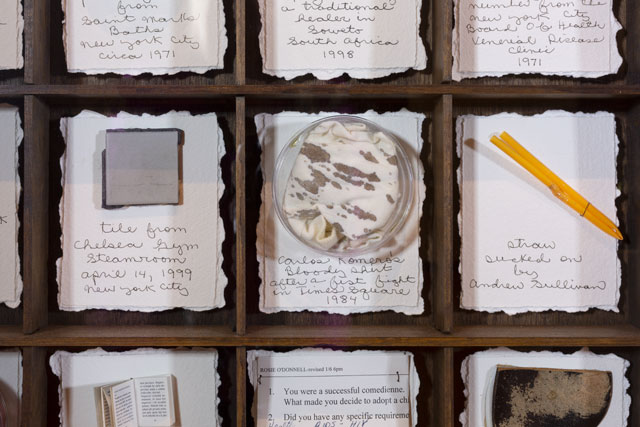 from
Saint Marks
Baths
New York City
circa 1971
a traditional
healer in
Soweto
South Africa
1998
number from the
New York City
Board of Health
Venereal Disease
Clinic
1971
tile from
Chelsea Gym
Steamroom
april 14, 1999
New York City
Carlos Romeros
Bloody shirt
after a fist fight
in Times Square
1984
straw
sucked on
by
Andrew Sullivan
ROSIE O'DONNELL revised 1/6 6pm
1. You were a successful comedienne.
What made you decide to adopt a ch
2. Did you have any specific requireme
AIDS - HIV